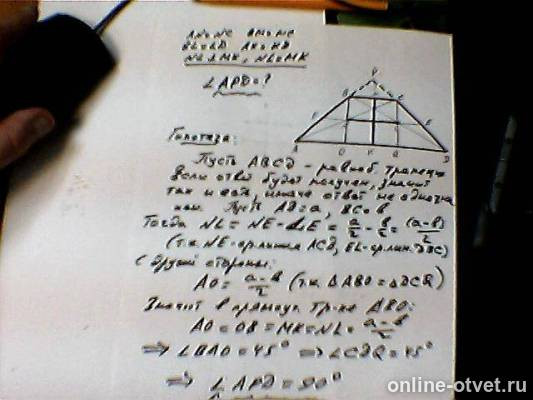 AN=NC BM=MC
BL=LD AK=KD
NL⊥MK, NL=MK
∠APD=?
Гипотеза:
Пусть ABCD - равноб. трапеция
Если ответ будет получен, значит
так и есть, иначе ответ не однозна
Пусть AD=a, BC=b
Тогда NL = NE - LE = a/2 - b/2 = (a-b)/2
(т.к. NE-ср.линия ACD, EL-ср.лин. DBC)
С другой стороны:
AO = (a-b)/2 (т.к. ΔABO=ΔDCQ)
Значит в прямоуг. тр-ке ABO:
AO=OB=MK=NL=(a-b)/2
⇒ ∠BAO=45° ⇒ ∠CDQ=45°
⇒ ∠APD=90°
P
B C
F E
A O K Q D
online-otvet.ru